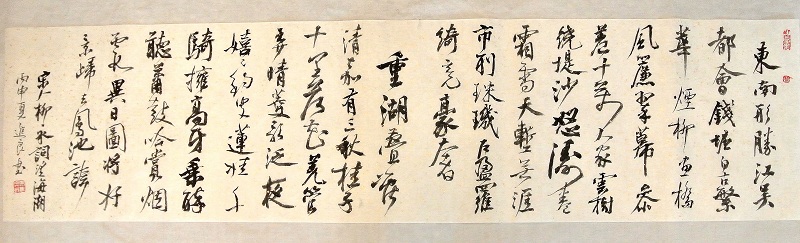 東南形勝江吴
都會錢塘自古繁
華煙柳畫橋
風簾翠幕參
差十萬人家雲樹
繞堤沙怒濤卷
霜雪天塹無涯
市列珠璣户盈羅
綺競豪奢
重湖疊巘
清嘉有三秋桂子
十里荷花羌管
弄晴菱歌泛夜
嬉嬉釣叟蓮娃千
騎擁高牙乘醉
聽簫鼓吟賞烟
霞異日圖將好
景歸去鳳池誇
宋柳永詞望海潮
丙申夏書